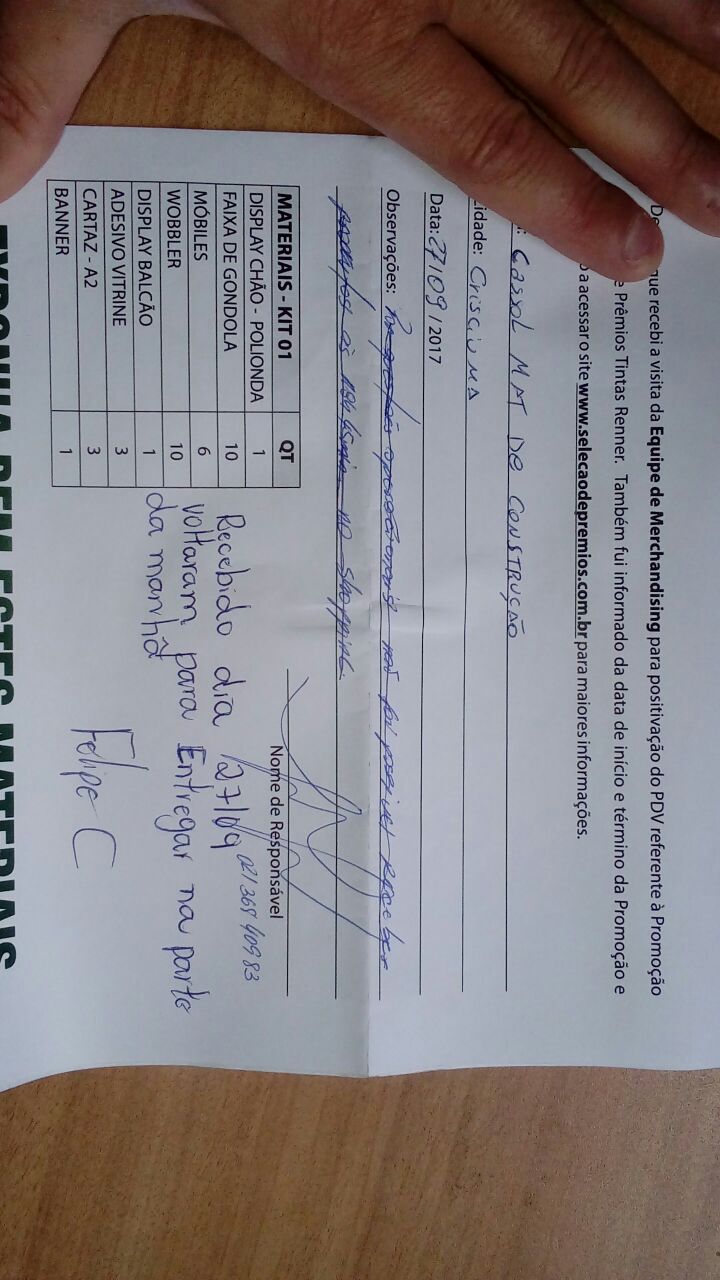 De que recebi a visita da Equipe de Merchandising para positivação do PDV referente à Promoção
e Prêmios Tintas Renner. Também fui informado da data de início e término da Promoção e
a acessar o site www.selecaodepremios.com.br para maiores informações.
: Cassol MAT DE CONSTRUÇÃO
idade: Criscium A
Data: 27/09/2017
Observações: não foi possivel receber
no shopping
Nome de Responsável
MATERIAIS - KIT 01 QT
DISPLAY CHÃO - POLIONDA 1
FAIXA DE GONDOLA 10
MÓBILES 6
WOBBLER 10
DISPLAY BALCÃO 1
ADESIVO VITRINE 3
CARTAZ - A2 3
BANNER 1
Recebido dia 27/09
voltaram para Entregar na parte
da manhã
Felipe C
ESTES MATERIAIS